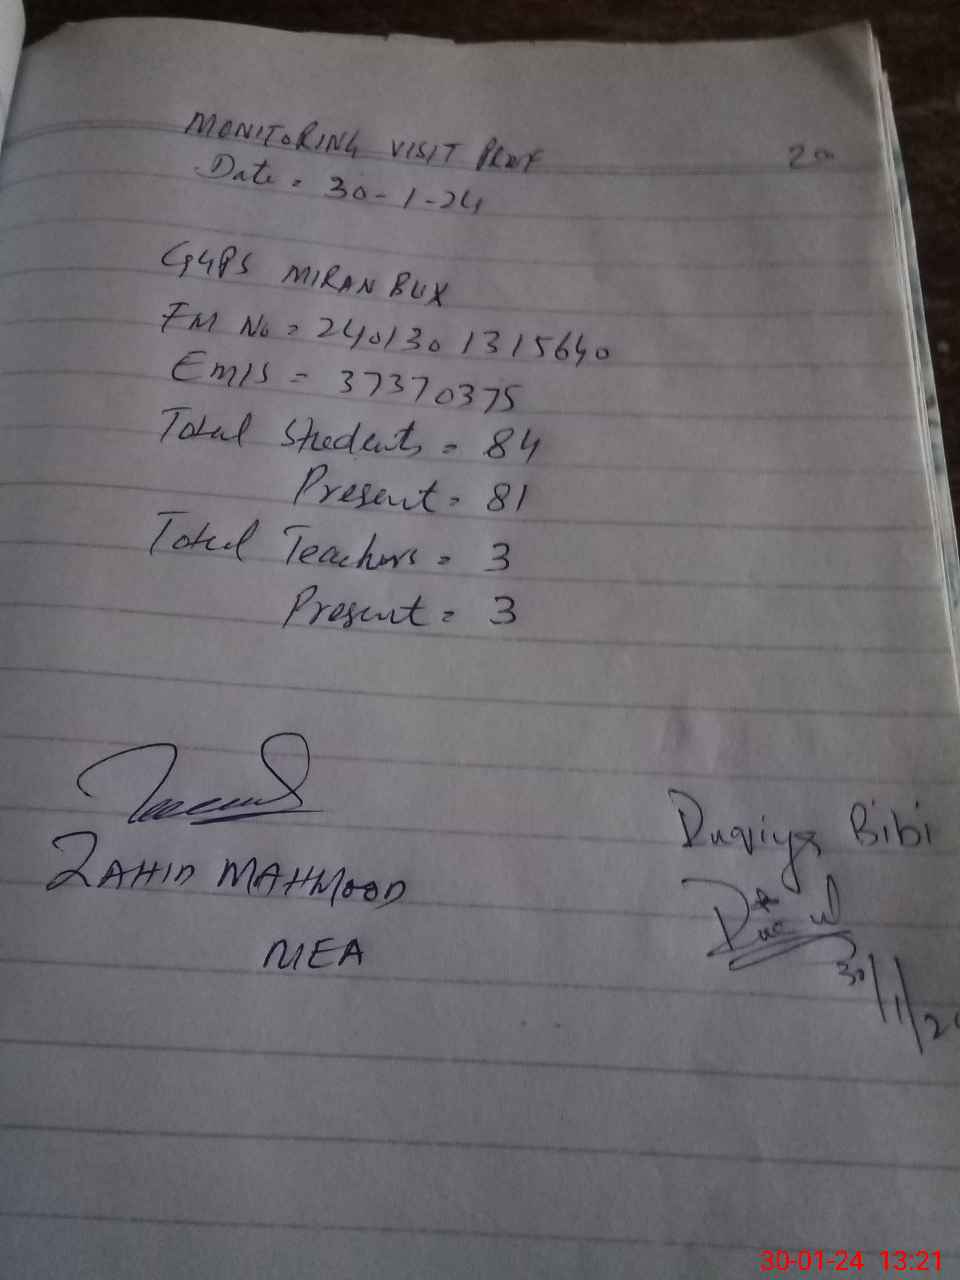 MONITORING VISIT PROOF
20
Date = 30-1-24
GGPS MIRAN BUX
FM No = 2401301315640
EMIS = 37370375
Total Students = 84
Present = 81
Total Teachers = 3
Present = 3
ZAHID MAHMOOD
MEA
Bibi
30/1/24
30-01-24 13:21